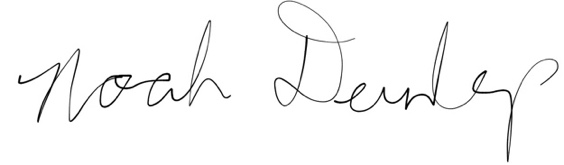 Noah Dunlap